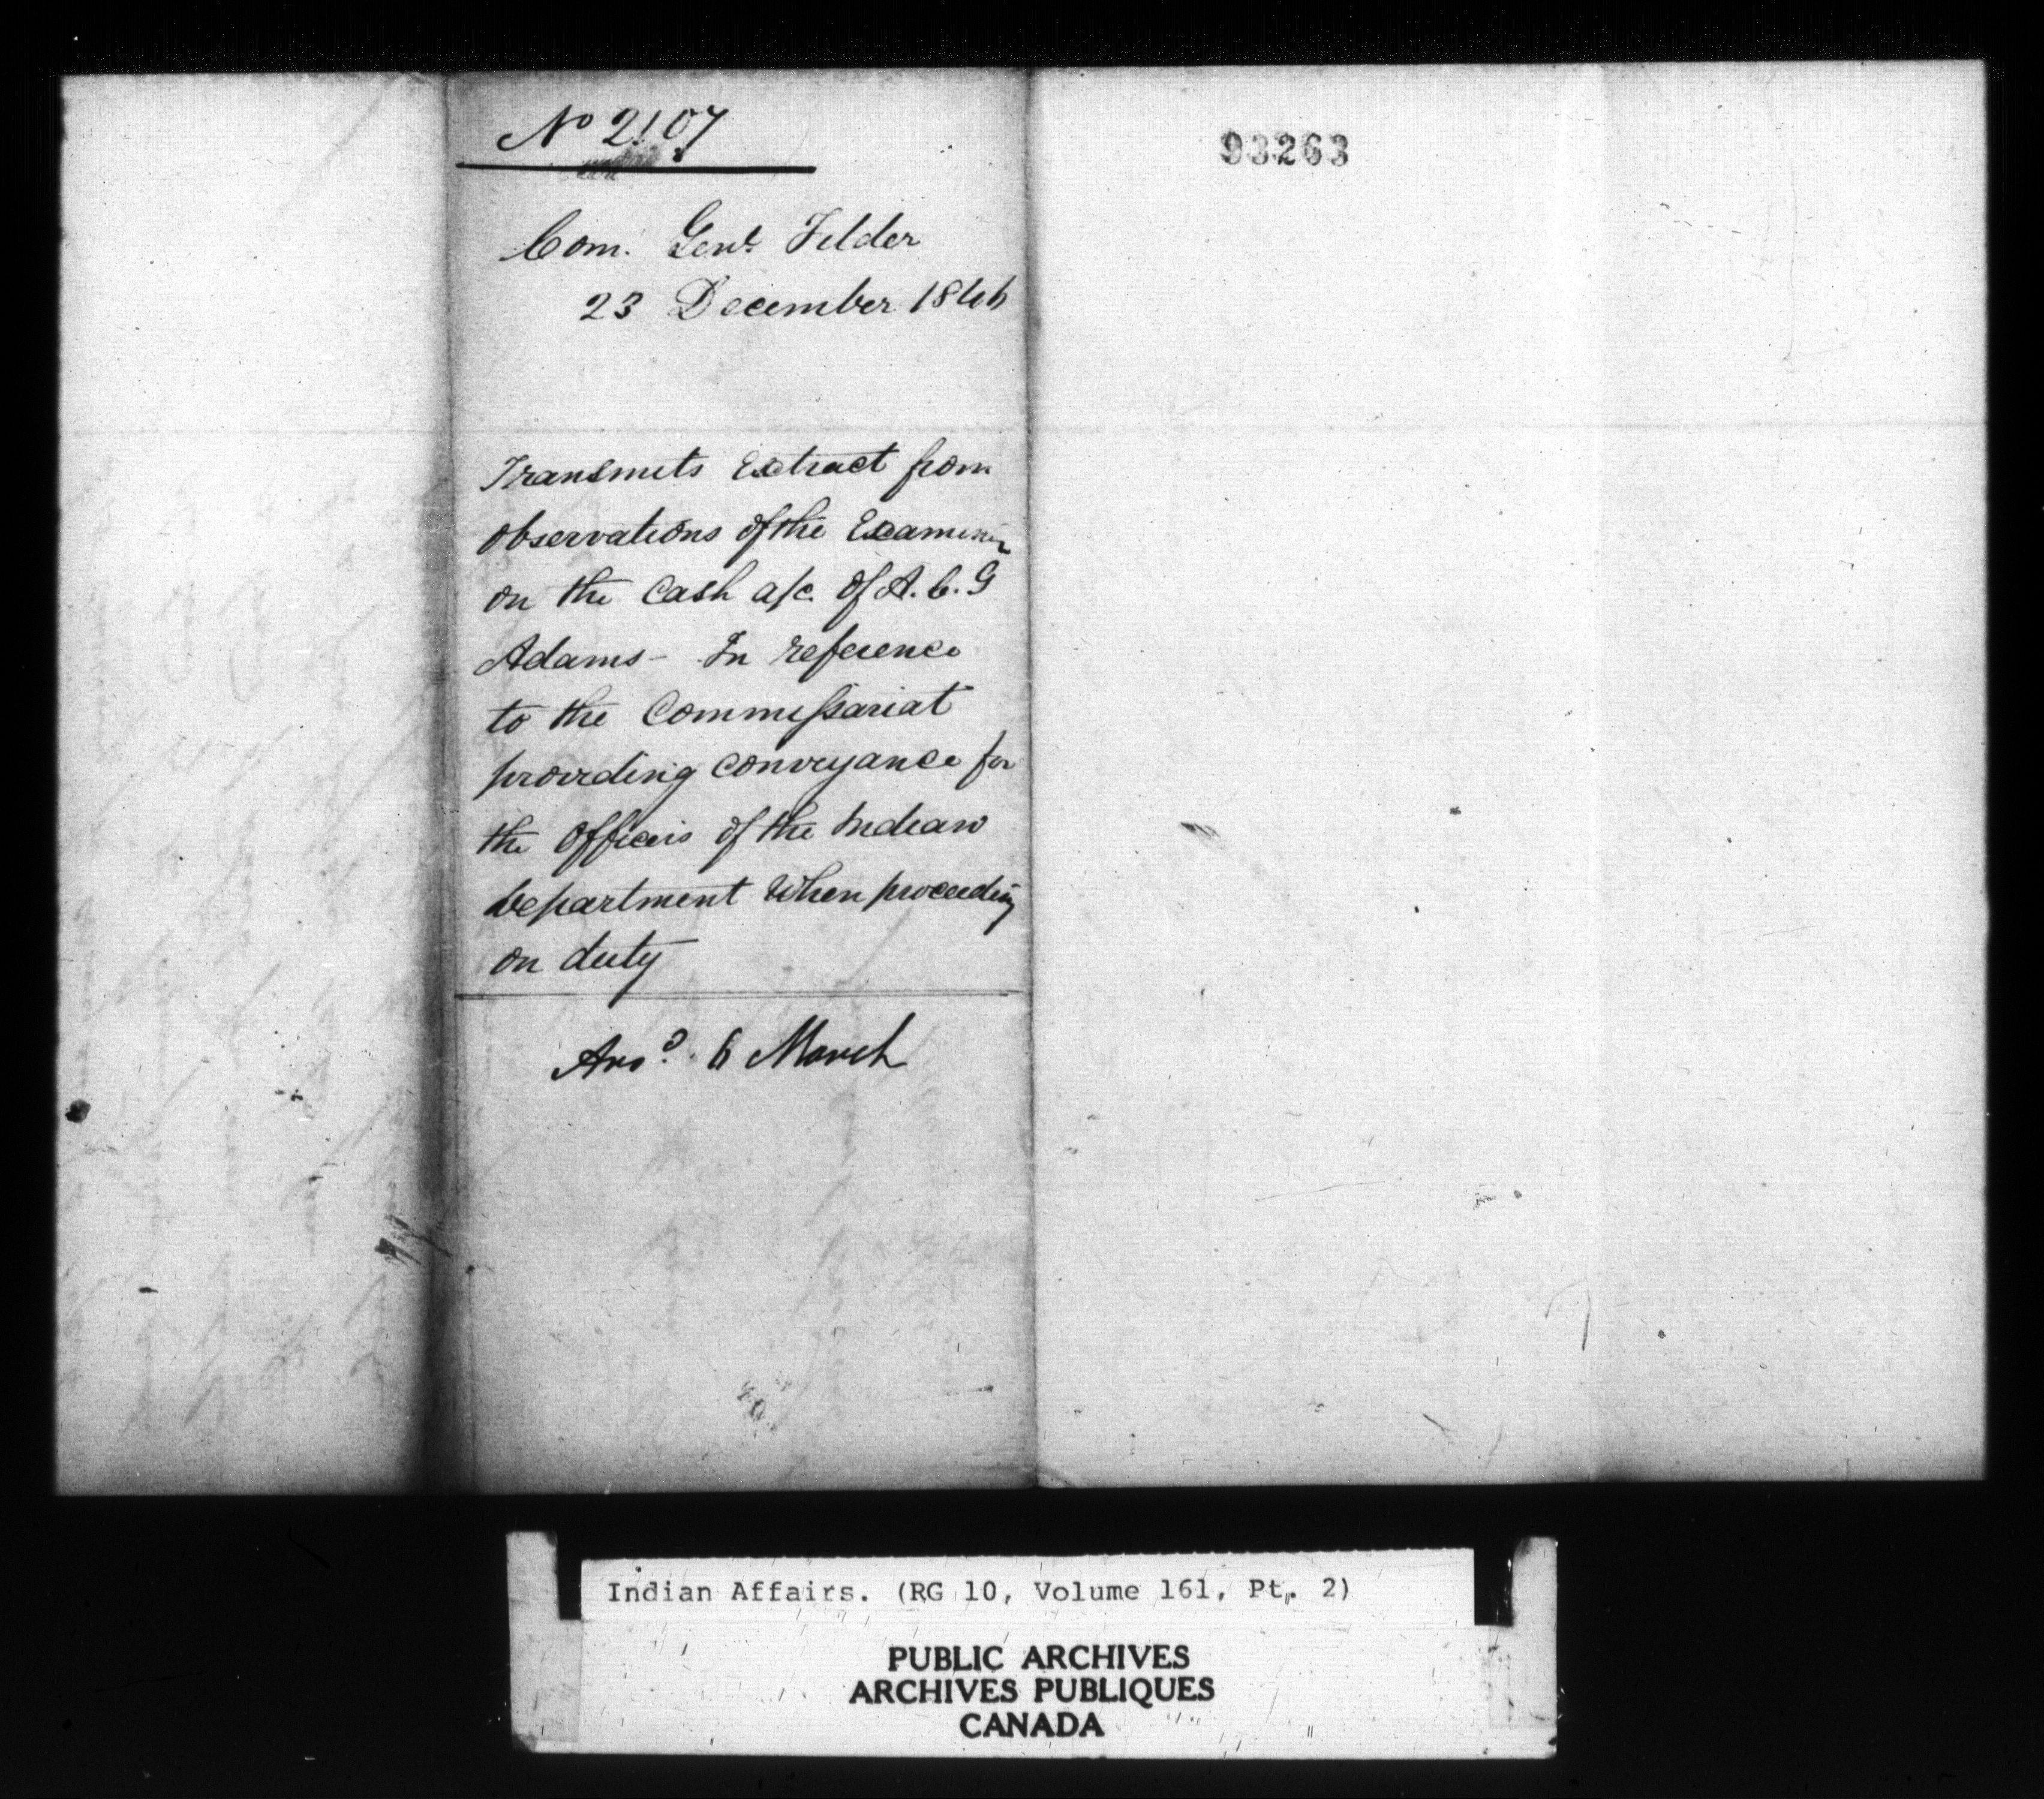 No 2107
93263
Com. Genl. Filder
23 December 1846
Transmits Extract from
observations of the Examiner
on the Cash a/c. of A. C. G
Adams - In reference
to the Commissariat
providing conveyance for
the Officers of the Indian
Department when proceeding
on duty
Ansd. 6 March
Indian Affairs. (RG 10, Volume 161, Pt. 2)
PUBLIC ARCHIVES
ARCHIVES PUBLIQUES
CANADA